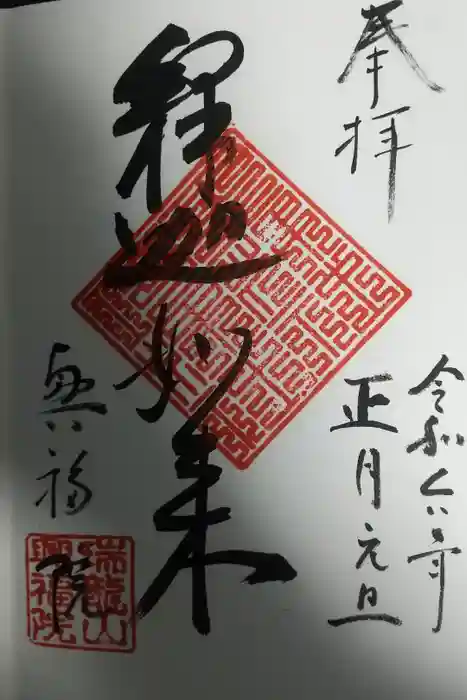 奉拝
令和六年
正月元旦
釈迦如来
興福院
瑞龍山
興福院